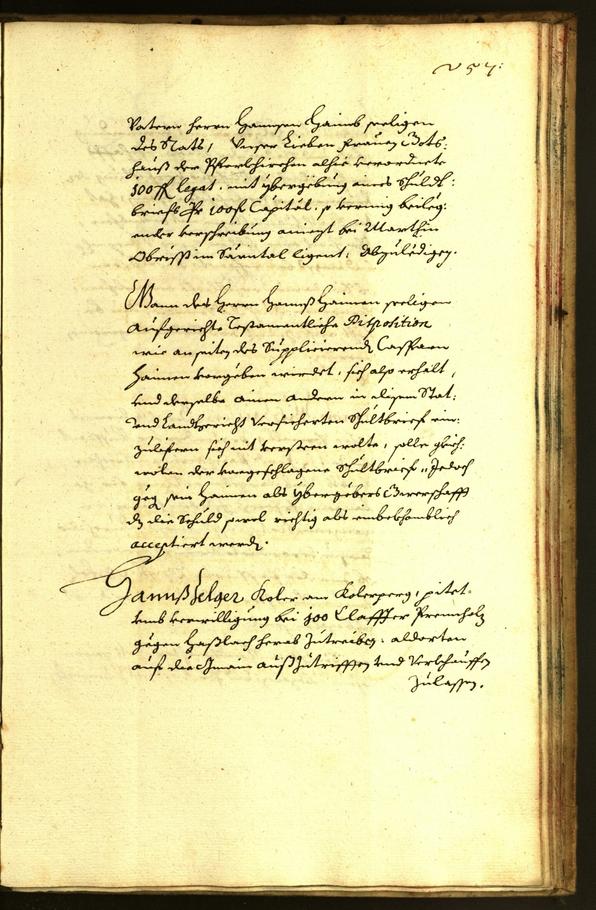 257:
Vatern herrn Hannsen Haimb seeligen
des Rats, Unser Lieben Frauen Gots=
hauß der Pfarrkhirchen alhie verordnete
100 fl legat, mit ybergebung aines Schuldt=
briefs Pr 100 fl Capital, vermig beileg=
ender verschreibung aniezt bei Marthin
Obrist im Särntal ligent, Abzuledigen.
Wann des Herrn Hannß Haimen seeligen
aufgerichte Testamentliche Dispotition
wie an seiten des Supplicierenden Casparn
Haimen vorgeben wierdet, sich also erhelt,
und derselbe ainen andern in disem Stat=
und Landtgericht Versicherten Schultbrief ein=
zulifern sich nit versteen wolte, solle gleich=
wolen der vorgeschlagene Schultbrief, Jedoch
gegen sein Haimen als ybergebers Gwerschafft
dz die Schuld sowol richtig als einbekhomblich
acceptiert werden.
Hannß Kofler am Koflerperg, pitet
umb verwilligung bei 100 Claffter Prennholz
gegen Haßlach herab zutreiben, alдorten
auf die Gmain außzutriften und Verkhauffen
Zulassen.